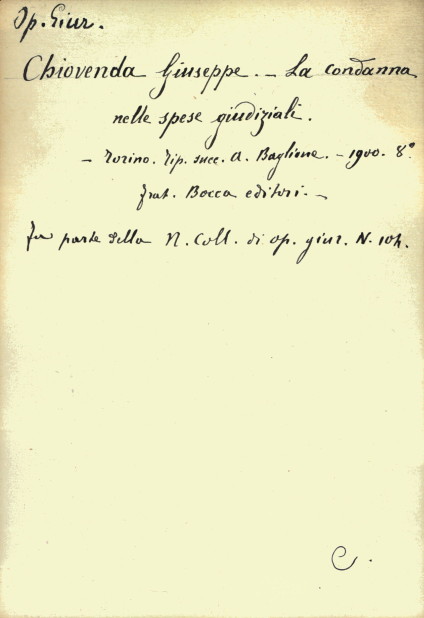 Op. Giur.
Chiovenda Giuseppe. — La condanna
nelle spese giudiziali.
— Torino. Tip. succ. A. Baglione. — 1900. 8°.
Frat. Bocca editori. —
Fa parte della N. Coll. di op. giur. N. 104.
C.